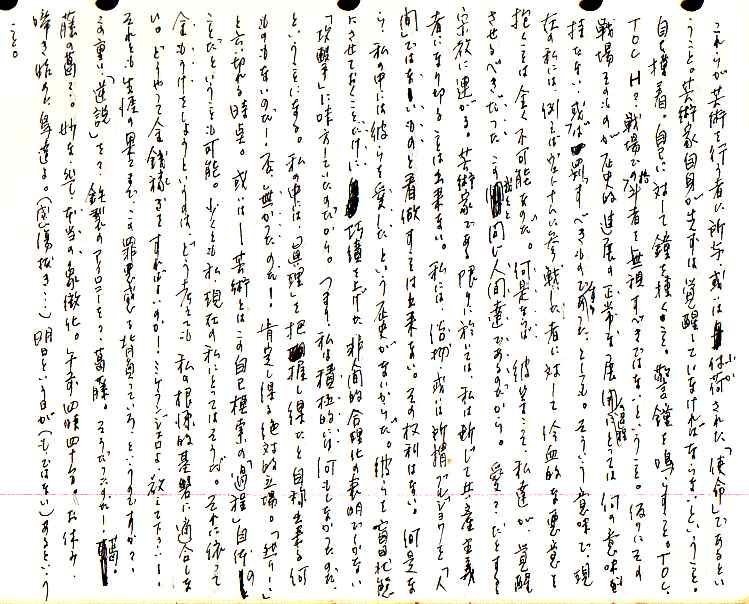 これらが芸術を行う者に所与、或いは負荷された「使命」であるとい
うこと。芸術家自身がまずは覚醒していなければならないということ。
自己模着。自己に対して鐘を撞くこと。警鐘を鳴らすこと。TOC.
TOCH？戦場での斗者を無視すべきではないということ。仮りにその
戦場そのものが歴史的進展の正常な展開にとっては何の意味も
持たない、或は罰すべきものであったとしても。そういう意味で、現
在の私には、例えばヴェトナムに参戦した者に対して冷血的な悪意を
抱くことは全く不可能なのだ。何是ならば、彼等こそ、私達が覚醒
させるべきだった、この同じ人間達であるのだから。愛？だとすると
宗教に連がる。芸術家である限りに於いては、私は断じて共産主義
者になり切ることは出来ない。私には、俗物、或いは所謂ブルジョワを「人
間」ではないものと看做すことは出来ない。その権利はない。何是な
ら、私の中には彼らを愛したという歴史がないからだ。彼らを盲目状態
にさせておくことだけに功績を上げた非人間的合理化の表明でしかない
「攻撃」に味方していたのだから。「つまり私は積極的には何もしなかったのだ」
ということになる。私の中には、「真理」を把握し得たと自称出来る何
ものもないのだ！否、無かったのだ！肯定し得る絶対的立場。「然り！」
と云い切れる時点。或いは――芸術とはこの自己模索の「過程」自体の
ことだということも可能。少くとも私、現在の私にとってはそうだ。それに依って
金もうけをしようというのは、どう考えても私の根源的基盤に適合しな
い。どうやって金銭稼ぎをすればいいのか！ミケランジェロよ、教えて下さい！
それとも生涯の果てまで、この罪悪感を背負っていろ、というのですか？
この重い「逆説」を？鉄製のアイロニーを？葛藤。そうだったのか！葛。
藤の葛？。妙な、然し本当の象徴化。午前四時四十分。お休み
啼き始めた鳥達よ。明日という日が（もしではない）あるという
こと。